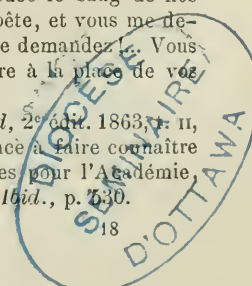 pête, et vous me de-
e demandez !... Vous
re à la place de vos
d, 2e édit. 1863, t. II,
nce à faire connaître
es pour l'Académie,
Ibid., p. 530.
18
DIOCÈSE
SEMINAIRE
D'OTTAWA